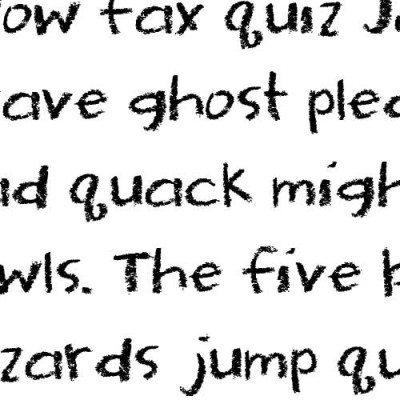 low fax quiz J
rave ghost plea
ad quack migh
wls. The five b
zards jump qu